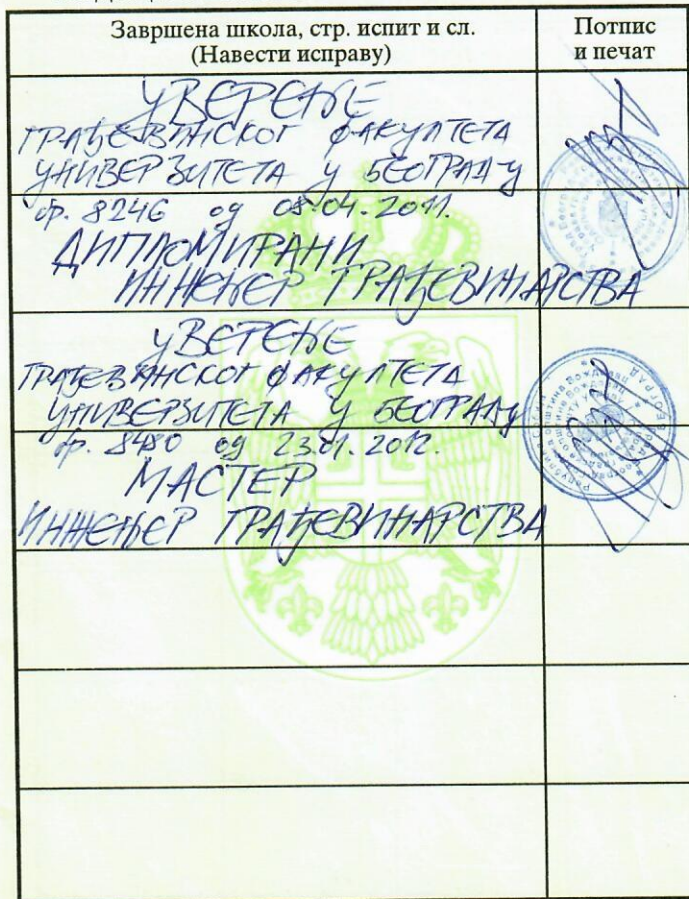 Завршена школа, стр. испит и сл.
(Навести исправу)
Потпис
и печат
УВЕРЕЊЕ
ГРАЂЕВИНСКОГ ФАКУЛТЕТА
УНИВЕРЗИТЕТА У БЕОГРАДУ
бр. 8246 од 08.04.2011.
ДИПЛОМИРАНИ
ИНЖЕЊЕР ГРАЂЕВИНАРСТВА
УВЕРЕЊЕ
ГРАЂЕВИНСКОГ ФАКУЛТЕТА
УНИВЕРЗИТЕТА У БЕОГРАДУ
бр. 8480 од 23.01.2012.
МАСТЕР
ИНЖЕЊЕР ГРАЂЕВИНАРСТВА